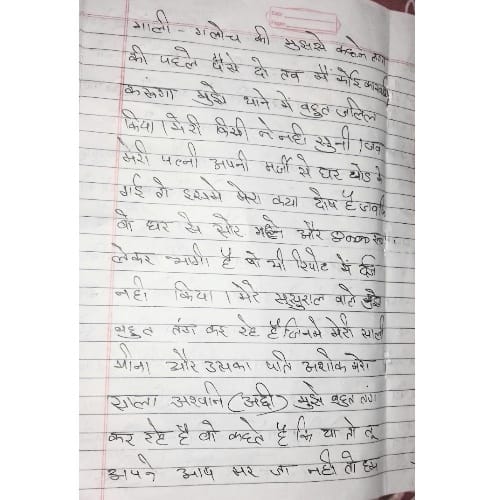 गाली - गलोच की मुझसे कहने लगा
की पहले पैसे दो तब मैं कोई कारवाई
करूंगा मुझे थाने में बहुत जलिल
किया। मेरी किसी ने नही सुनी। जब
मेरी पत्नी अपनी मर्जी से घर छोड के
गई तो इसमे मेरा क्या दोष है जबकि
वो घर से सोर गहने और
लेकर भागी है वो भी रिपोट में दर्ज
नही किया। मेरे सुसुराल वाले मुझे
बहुत तंग कर रहे है जिनमे मेरी साली
मीना और उसका पति अशोक मेरा
साला अश्वनि (अद्दी) मुझे बहुत तंग
कर रहे है वो कहते है कि या तो तू
अपने आप मर जा नही तो हम